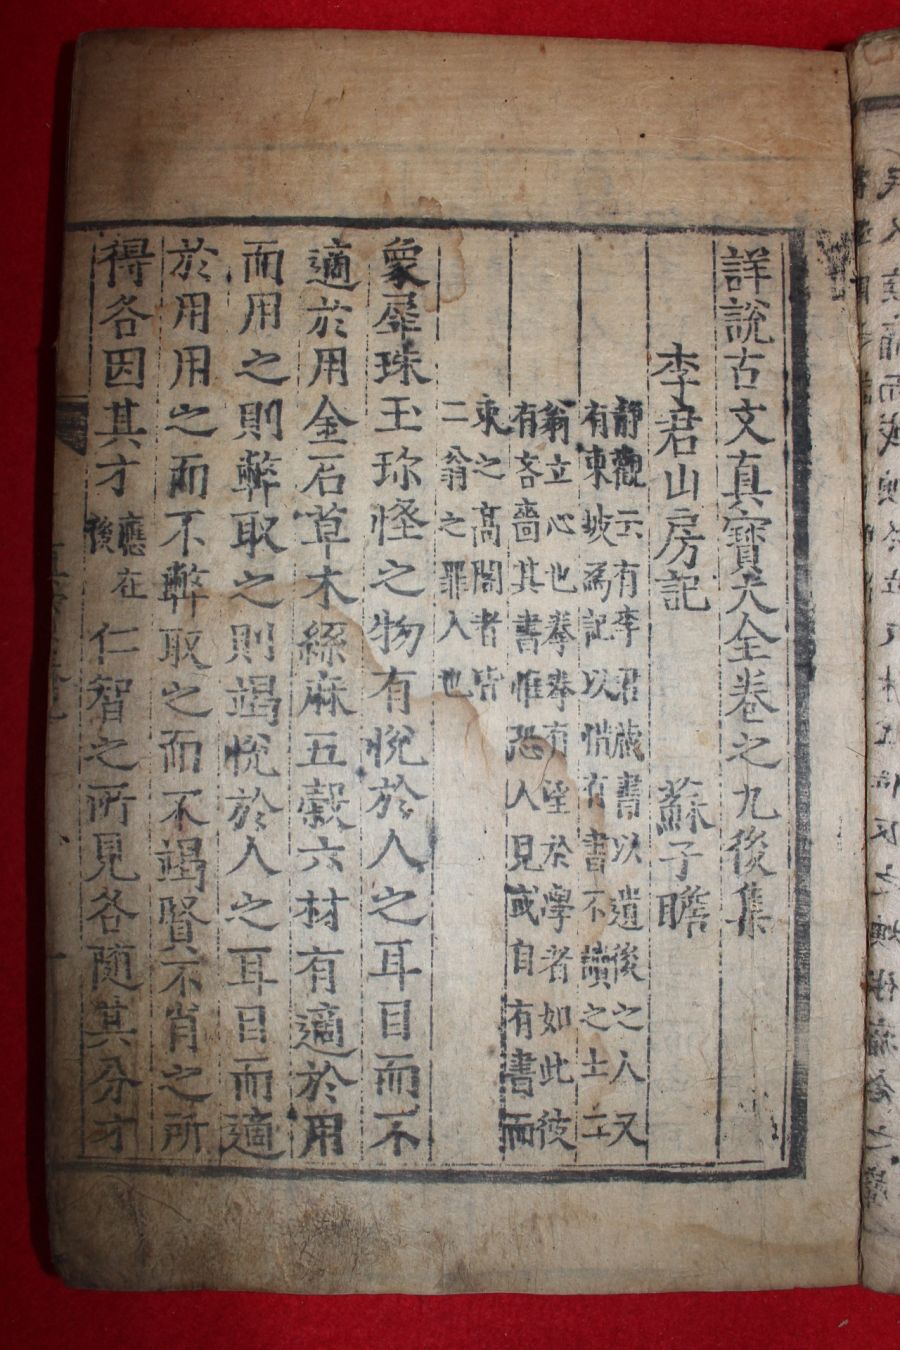 詳說古文真寶大全卷之九後集
李君山房記 蘇子瞻
靜觀云有李君藏書以遺後之人又
有東坡爲記以惜有書不讀之士二
翁立心也拳拳有望於學者如此彼
有吝嗇其書惟恐人見或自有書而
束之高閣者皆
二翁之罪人也
象犀珠玉珎怪之物有悅於人之耳目而不
適於用金石草木絲麻五穀六材有適於用
而用之則弊取之則竭悅於人之耳目而適
於用用之而不弊取之而不竭賢不肖之所
得各因其才應在後仁智之所見各隨其分才